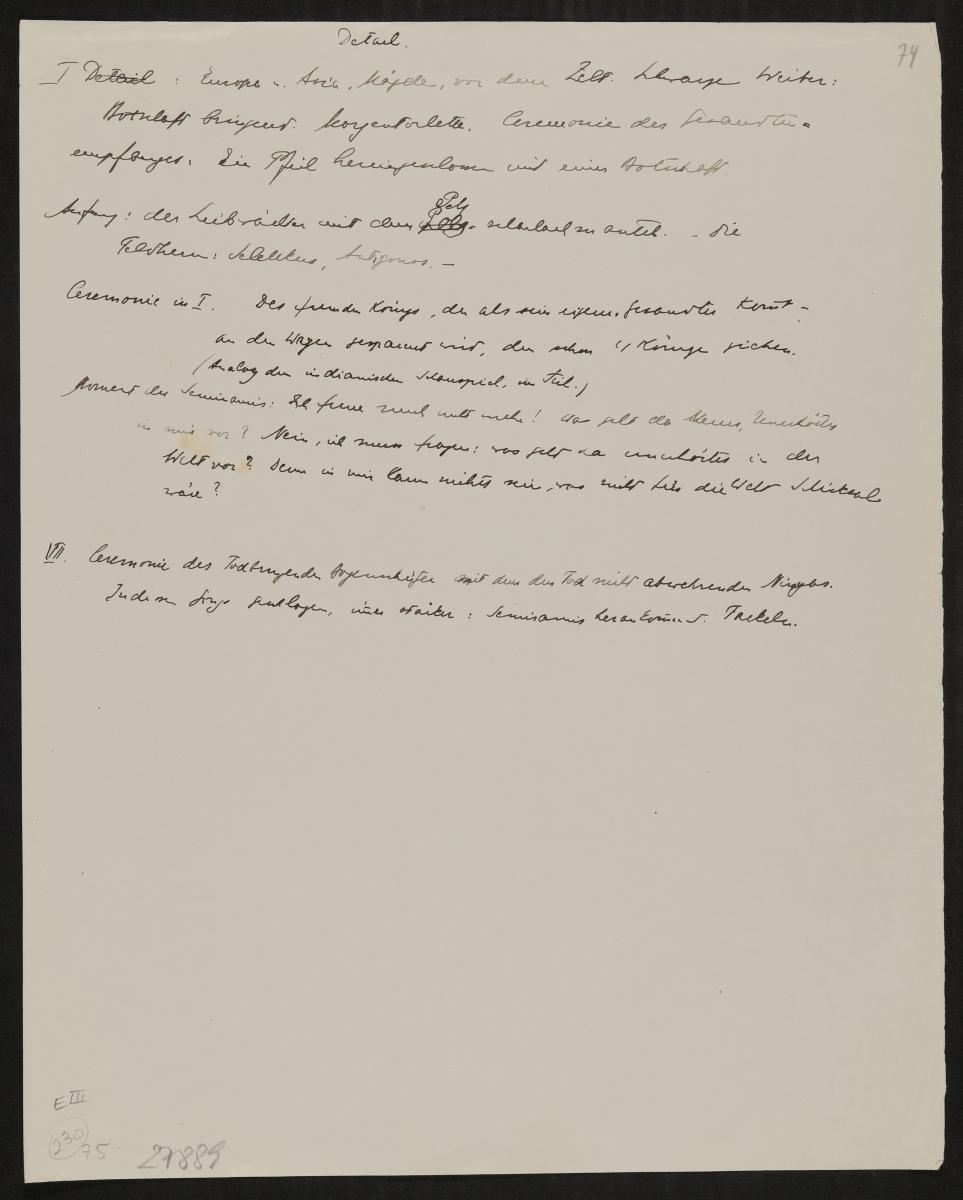 Detail.
74
I Detail : Europa u. Asia, Mägde, vor dem Zelt. Schwarze Weiber:
Botschaft bringend. Morgentoilette. Ceremonie des Gesandten=
empfanges. Ein Pfeil hereingeschossen mit einer Botschaft.
Anfang: der Leibwächter mit dem
Feldherrn: Seleukus, Antigonos. —
Ceremonie in I. Des fremden Königs, der als sein eigener Gesandter kommt –
an den Wagen gespannt wird, den schon 4 Könige ziehen.
(Analog dem indianischen Schauspiel, im Stil.)
Moment der Semiramis: Ich freue mich nicht mehr! was geht da Neues, Unerhörtes
in mir vor? Nein, ich muss fragen: was geht da unerhörtes in der
Welt vor? Denn in mir kann nichts sein, was nicht für die Welt Schicksal
wäre?
VII. Ceremonie des Todbringenden mit dem den Tod nicht abwehrenden Ninyas.
Indessen Gongs geschlagen, immer stärker: Semiramis herankommend. Fackeln.
E III
230
75
27889